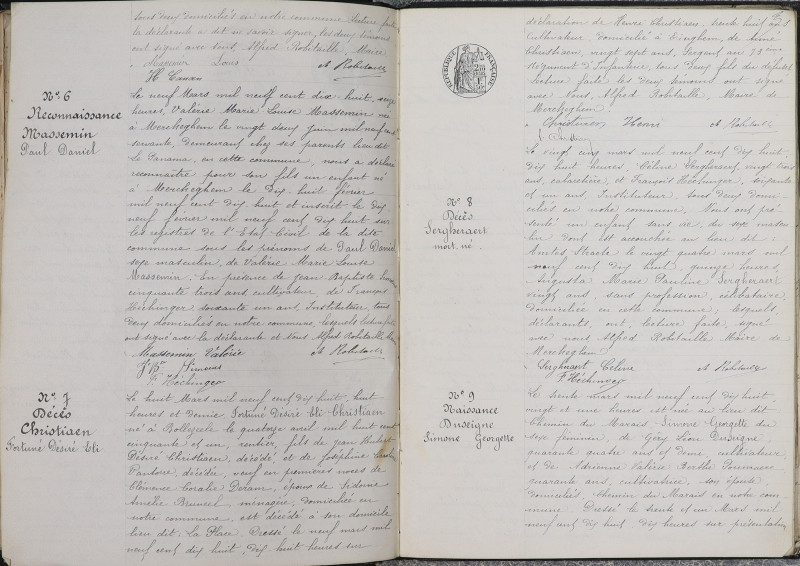 sous deux domiciliés en notre commune. Lecture faite
la déclarante a dit ne savoir signer, les deux témoins
ont signé avec nous, Alfred Robitaille, Maire
Louis A Robitaille
N° 6
Reconnaissance
Massemin
Paul Daniel
Le neuf Mars mil neuf cent dix huit, onze
heures, Valérie Marie Louise Massemin née
à Merckeghem le vingt deux Juin mil neuf cent
demeurant chez ses parents lieu dit
Le Panama, en cette commune, nous a déclaré
reconnaître pour son fils un enfant né
à Merckeghem le Dix huit février
mil neuf cent dix huit et inscrit le dix
neuf février mil neuf cent dix huit sur
les registres de l'Etat-Civil de la dite
commune sous les prénoms de Paul Daniel
sexe masculin, de Valérie Marie Louise
Massemin. En présence de Jean Baptiste
cinquante trois ans, cultivateur, de François
Hechinger soixante un ans, Instituteur, tous
deux domiciliés en notre commune, lesquels lecture faite
ont signé avec la déclarante et nous Alfred Robitaille
Massemin Valérie A Robitaille
J Bte Simoens
F. Héchinger
N° 7
Décès
Christiaen
Fortuné Désiré Eli
Le huit Mars mil neuf cent dix huit, huit
heures et demie Fortuné Désiré Eli Christiaen
né à Bollezeele le quatorze avril mil huit cent
cinquante et un, rentier, fils de Jean
Désiré Christiaen, décédé et de Joséphine
décédée, veuf en premières noces de
Clémence Coralie époux de Sidonie
Amélie Bruneel, ménagère, domiciliée en
notre commune, est décédé à son domicile
lieu dit La Place. Dressé le neuf mars mil
neuf cent dix huit, dix huit heures sur
déclaration de Henri Christiaen, trente huit ans
Cultivateur, domicilié à Eringhem, de Aimé
Christiaen, vingt sept ans, Sergent au 73ème
Régiment d'Infanterie, tous deux fils du défunt
lecture faite les deux témoins ont signé
avec Nous, Alfred Robitaille, Maire de
Merckeghem
Christiaen Henri A Robitaille
RÉPUBLIQUE FRANÇAISE
N° 8
Décès
Sergheraert
mort-né
Le vingt cinq mars mil neuf cent dix huit,
dix huit heures, Célina Sergheraert, vingt trois
ans, cabaretière, et François Héchinger, soixante
et un ans, Instituteur, tous deux domi-
ciliés en notre commune, Nous ont pré-
senté un enfant sans vie, du sexe mascu-
lin dont est accouchée au lieu dit:
Straete le vingt quatre mars mil
neuf cent dix huit, quinze heures,
Augusta Marie Pauline Sergheraert
vingt ans, sans profession, célibataire,
domiciliée en cette commune; lesquels
déclarants, ont, lecture faite, signé
avec nous Alfred Robitaille Maire de
Merckeghem
Serghuaert Célina A Robitaille
F. Héchinger
N° 9
Naissance
Duseigne
Simone Georgette
Le trente mars mil neuf cent dix huit,
vingt et une heures est née au lieu dit
Chemin du Marais Simone Georgette du
sexe féminin, de Géry Léon Duseigne,
quarante quatre ans et demi, cultivateur
et de Adrienne Valérie Berthe
quarante ans, cultivatrice, son épouse,
domiciliés, Chemin du Marais en notre com-
mune. Dressé le trente et un Mars mil
neuf cent dix huit, dix heures sur présentation